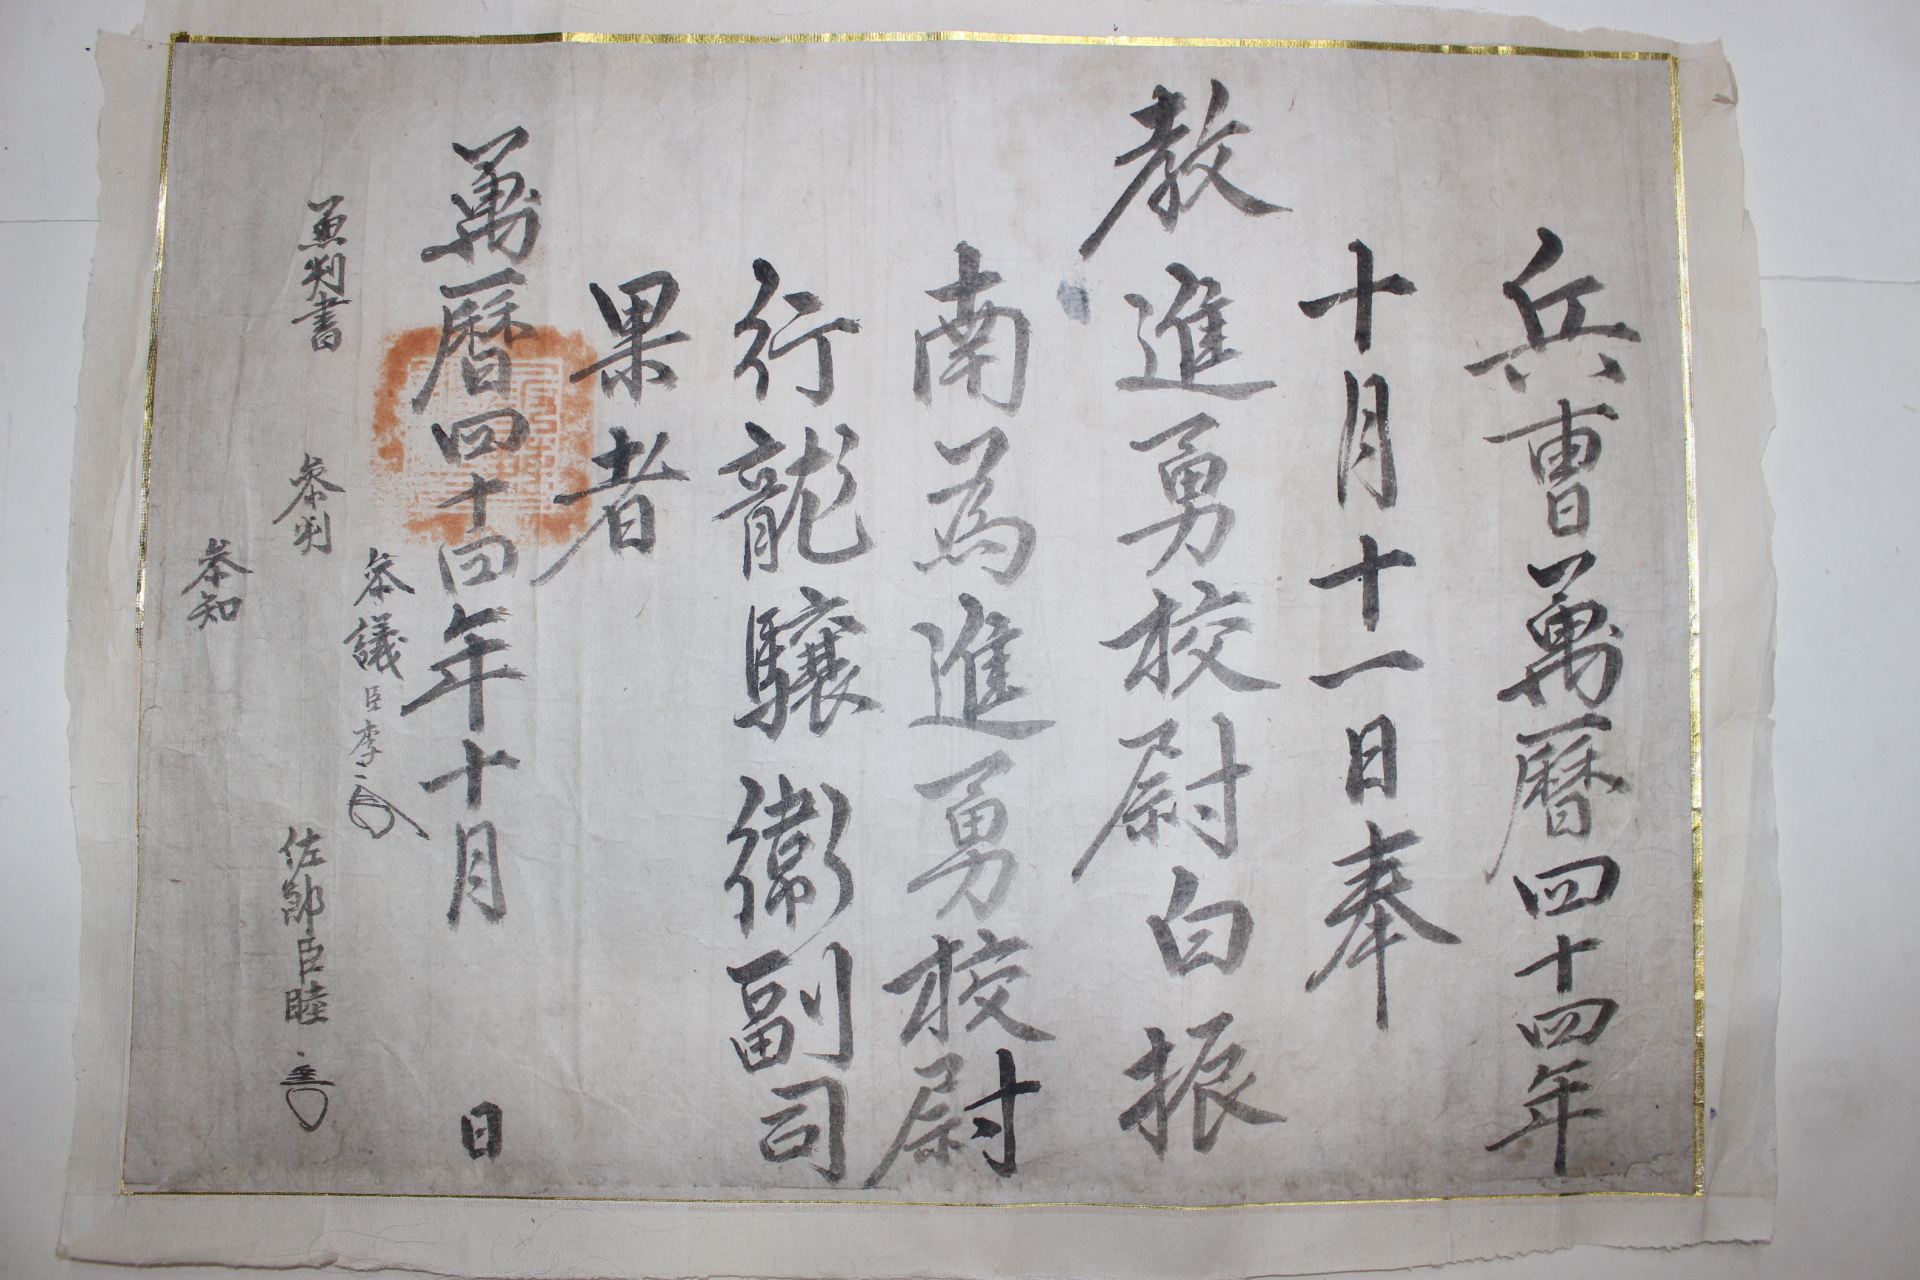 兵曹萬曆四十四年
十月十一日奉
教進勇校尉白振
南為進勇校尉
行龍驤衛副司
果者
萬曆四十四年十月 日
參議臣李
兼判書 參判 佐郎臣睦
參知